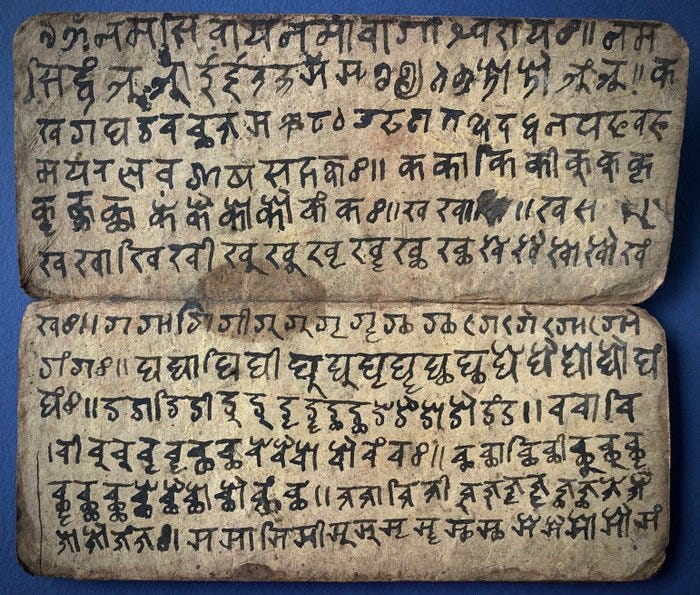 ९ ॐ नमः सिवाय नमो वागीश्वराय ः॥ नम
सिद्धं अ आ इ ई उ ऊ ऋ ॠ ऌ ॡ ए ऐ ओ औ अं अः॥ क
ख ग घ ङ च छ ज झ ञ ट ठ ड ढ ण त थ द ध न प फ ब भ
म य र ल व श ष स ह क्षः॥ क का कि की कु कू कृ
कॄ कॢ कॣ के कै को कौ कं कः॥ ख खा ॥ ख
ख खा खि खी खु खू खृ खॄ खॢ खॣ खे खै खो खौ खं
खः॥ ग गा गि गी गु गू गृ गॄ गॢ गॣ गे गै गो गौ
गं गः॥ घ घा घि घी घु घू घृ घॄ घॢ घॣ घे घै घो घौ घं
घः॥ ङ ङा ङि ङी ङु ङू ङृ ङॄ ङॢ ङॣ ङे ङै ङो ङौ ङं ङ॥ च चा चि
ची चु चू चृ चॄ चॢ चॣ चे चै चो चौ चं चः॥ छ छा छि छी छु छू छृ
छॄ छॢ छॣ छे छै छो छौ छं छ॥ ज जा जि जी जु जू जृ जॄ जॢ जॣ जे जै
जो जौ जं जः। झ झा झि झी झु झू झृ झॄ झॢ झॣ झे झै झो झौ झं